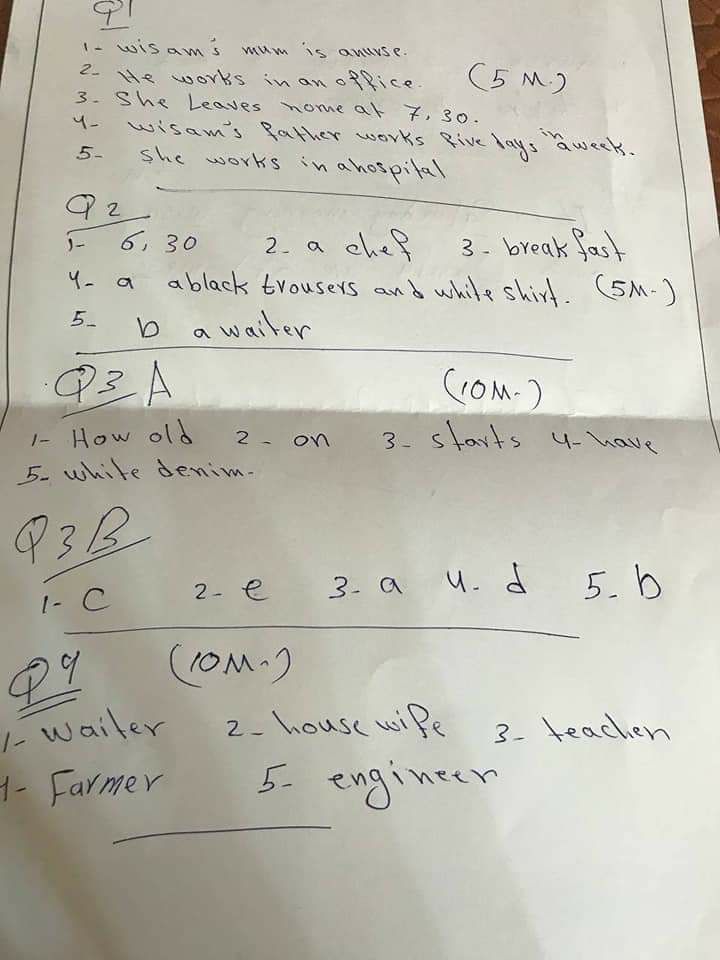 Q1
1- wisam's mum is anurse.
2- He works in an office. (5 M.)
3- She Leaves home at 7,30.
4- wisam's father works five days in aweek.
5- She works in ahospital
Q2
1- 6,30 2- a chef 3- breakfast
4- a ablack trousers and white shirt. (5M-)
5- b a waiter
Q3 A (10M-)
1- How old 2- on 3- starts 4- have
5- white denim-
Q3B
1- C 2- e 3- a 4- d 5- b
Q4 (10M-)
1- waiter 2- house wife 3- teacher
4- Farmer 5- engineer